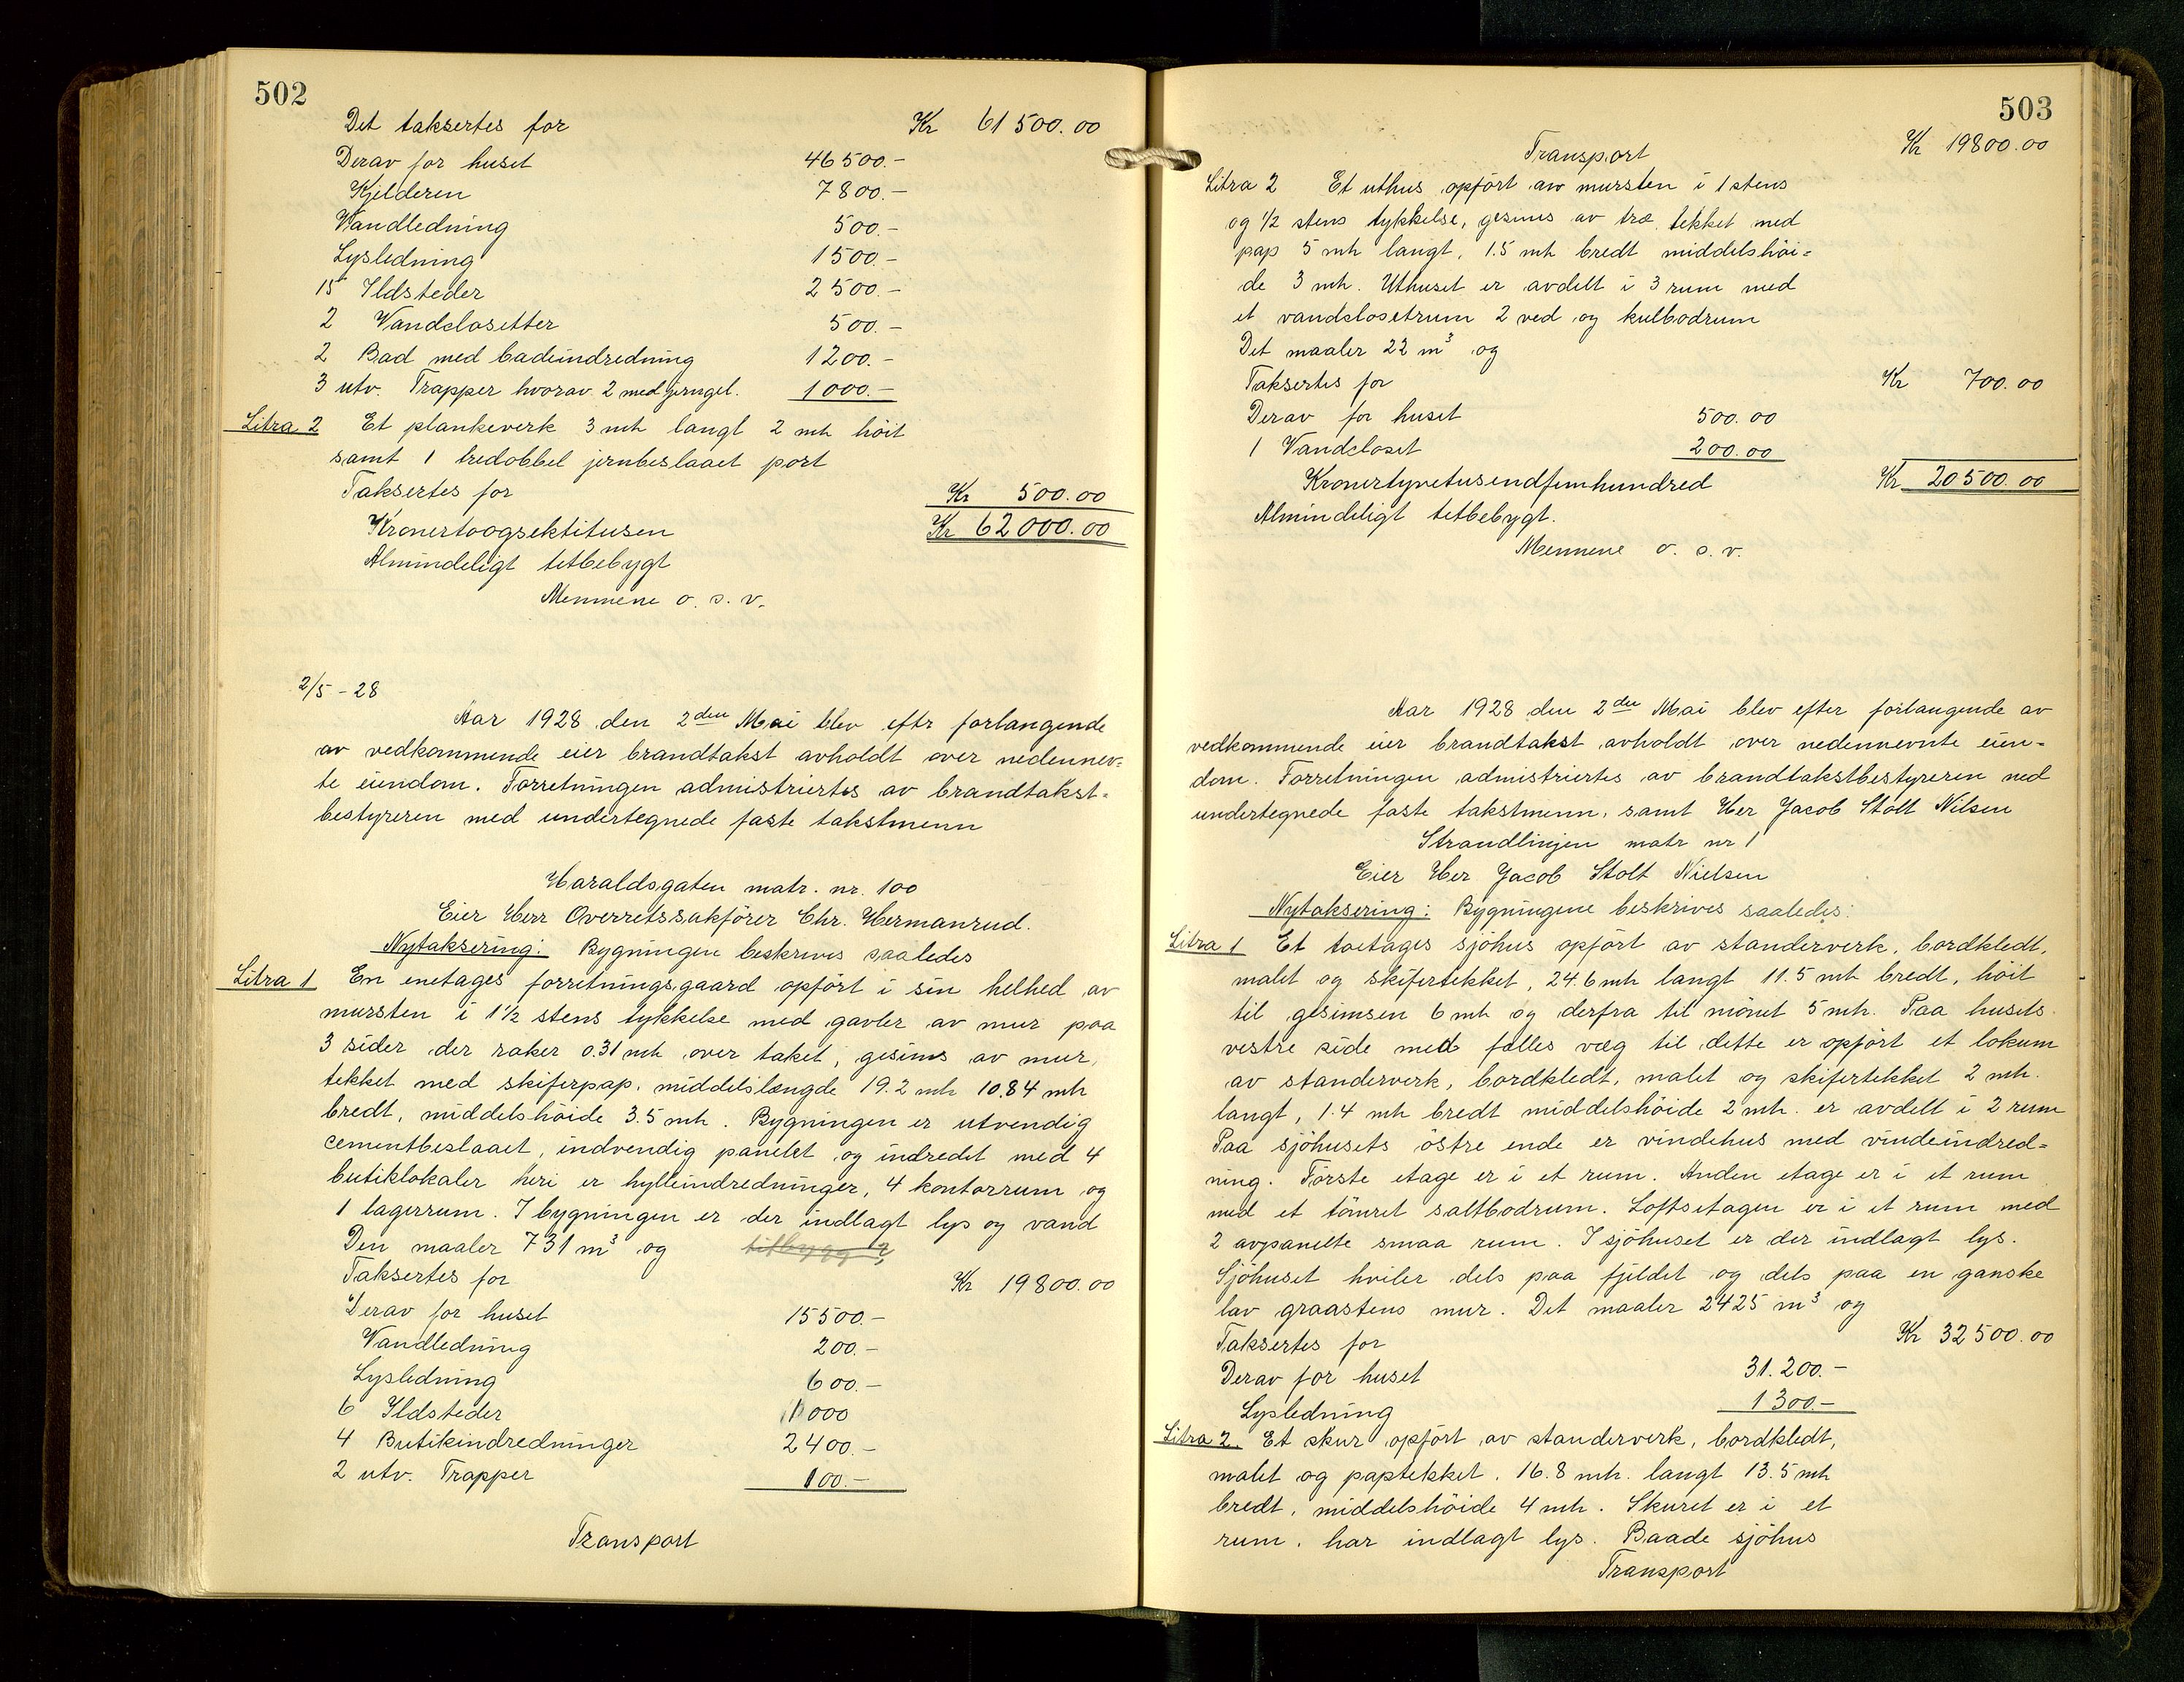 502
Det taksertes for Kr 61500.00
Derav for huset 46500.-
Kjelderen 7800.-
Vandledning 500.-
Lysledning 1500.-
15 Ildsteder 2500.-
2 Vandclosetter 500.-
2 Bad med badeindredning 1200.-
3 utv. Trapper hvorav 2 med jerngel. 1000.-
Litra 2 Et plankeverk 3 mtr langt 2 mtr höit
samt 1 tredobbel jernbeslaaet port
Taksertes for Kr 500.00
Kronertoogsektitusen Kr 62000.00
Almindeligt tetbebygt
Mennene o. s. v.
2/5 - 28
Aar 1928 den 2den Mai blev eftr forlangende
av vedkommende eier brandtakst avholdt over nedennev-
te eiendom. Forretningen admistriertes av brandtakst-
bestyreren med undertegnede faste takstmenn
Haraldsgaten matr. nr. 100
Eier Herr Overretssakförer Chr. Hermansrud.
Nytaksering: Bygningen beskrives saaledes
Litra 1 En enetages forretningsgaard opfört i sin helhed av
mursten i 1½ stens tykkelse med gavler av mur paa
3 sider der raker 0.31 mtr over taket, gesims av mur,
tekket med skiferpap, middelslængde 19.2 mtr 10.84 mtr
bredt, middelshöide 3.5 mtr. Bygningen er utvendig
cementbeslaaet, indvendig panelet og indredet med 4
butiklokaler heri er hylleindredninger, 4 kontorrum og
1 lagerrum. I bygningen er der indlagt lys og vand
Den maaler 731 m³ og
Taksertes for Kr 19800.00
Derav for huset 15500.-
Vandledning 200.-
Lysledning 600.-
6 Ildsteder 1000
4 Butikindredninger 2400.-
2 utv. Trapper 100.-
Transport
503
Transport Kr 19800.00
Litra 2 Et uthus opfört av mursten i 1 stens
og ½ stens tykkelse, gesims av træ, tekket med
pap 5 mtr langt, 1.5 mtr bredt middelshöi-
de 3 mtr. Uthuset er avdelt i 3 rum med
et vandclosetrum 2 ved og kulbodrum
Det maaler 22 m³ og
Taksertes for Kr 700.00
Derav for huset 500.00
1 Vandcloset 200.00
Kronertyvetusendfemhundred Kr 20500.00
Almindeligt tetbebygt.
Mennene o. s. v.
Aar 1928 den 2den Mai blev efter forlangende av
vedkommende eier brandtakst avholdt over nedennevnte eien-
dom. Forretningen admistriertes av brandtakstbestyreren med
undertegnede faste takstmenn, samt Her Jacob Stolt Nilsen
Strandlinjen matr nr 1
Eier Her Jacob Stolt Nielsen
Nytaksering: Bygningene beskrives saaledes:
Litra 1 Et toetages sjöhus opfört av standerverk, bordkledt,
malet og skifertekket, 24.6 mtr langt 11.5 mtr bredt, höit
til gesimsen 6 mtr og derfra til mönet 5 mtr. Paa husets
vestre side med felles væg til dette er opfört et lokum
av standerverk, bordkledt, malet og skifertekket 2 mtr.
langt, 1.4 mtr bredt middelshöide 2 mtr. er avdelt i 2 rum
Paa sjöhusets östre ende er vindehus med vindeindred-
ning. Förste etage er i et rum. Anden etage er i et rum
med et tömret saltbodrum. Loftsetagen er i et rum med
2 avpanelte smaa rum. I sjöhuset er der indlagt lys.
Sjöhuset hviler dels paa fjeldet og dels paa en ganske
lav graastens mur. Det maaler 2425 m³ og
Taksertes for Kr 32500.00
Derav for huset 31.200.-
Lysledning 1300.-
Litra 2. Et skur opfört av standerverk, bordkledt,
malet og paptekket, 16.8 mtr. langt 13.5 mtr
bredt, middelshöide 4 mtr. Skuret er i et
rum, har indlagt lys. Baade sjöhus
Transport